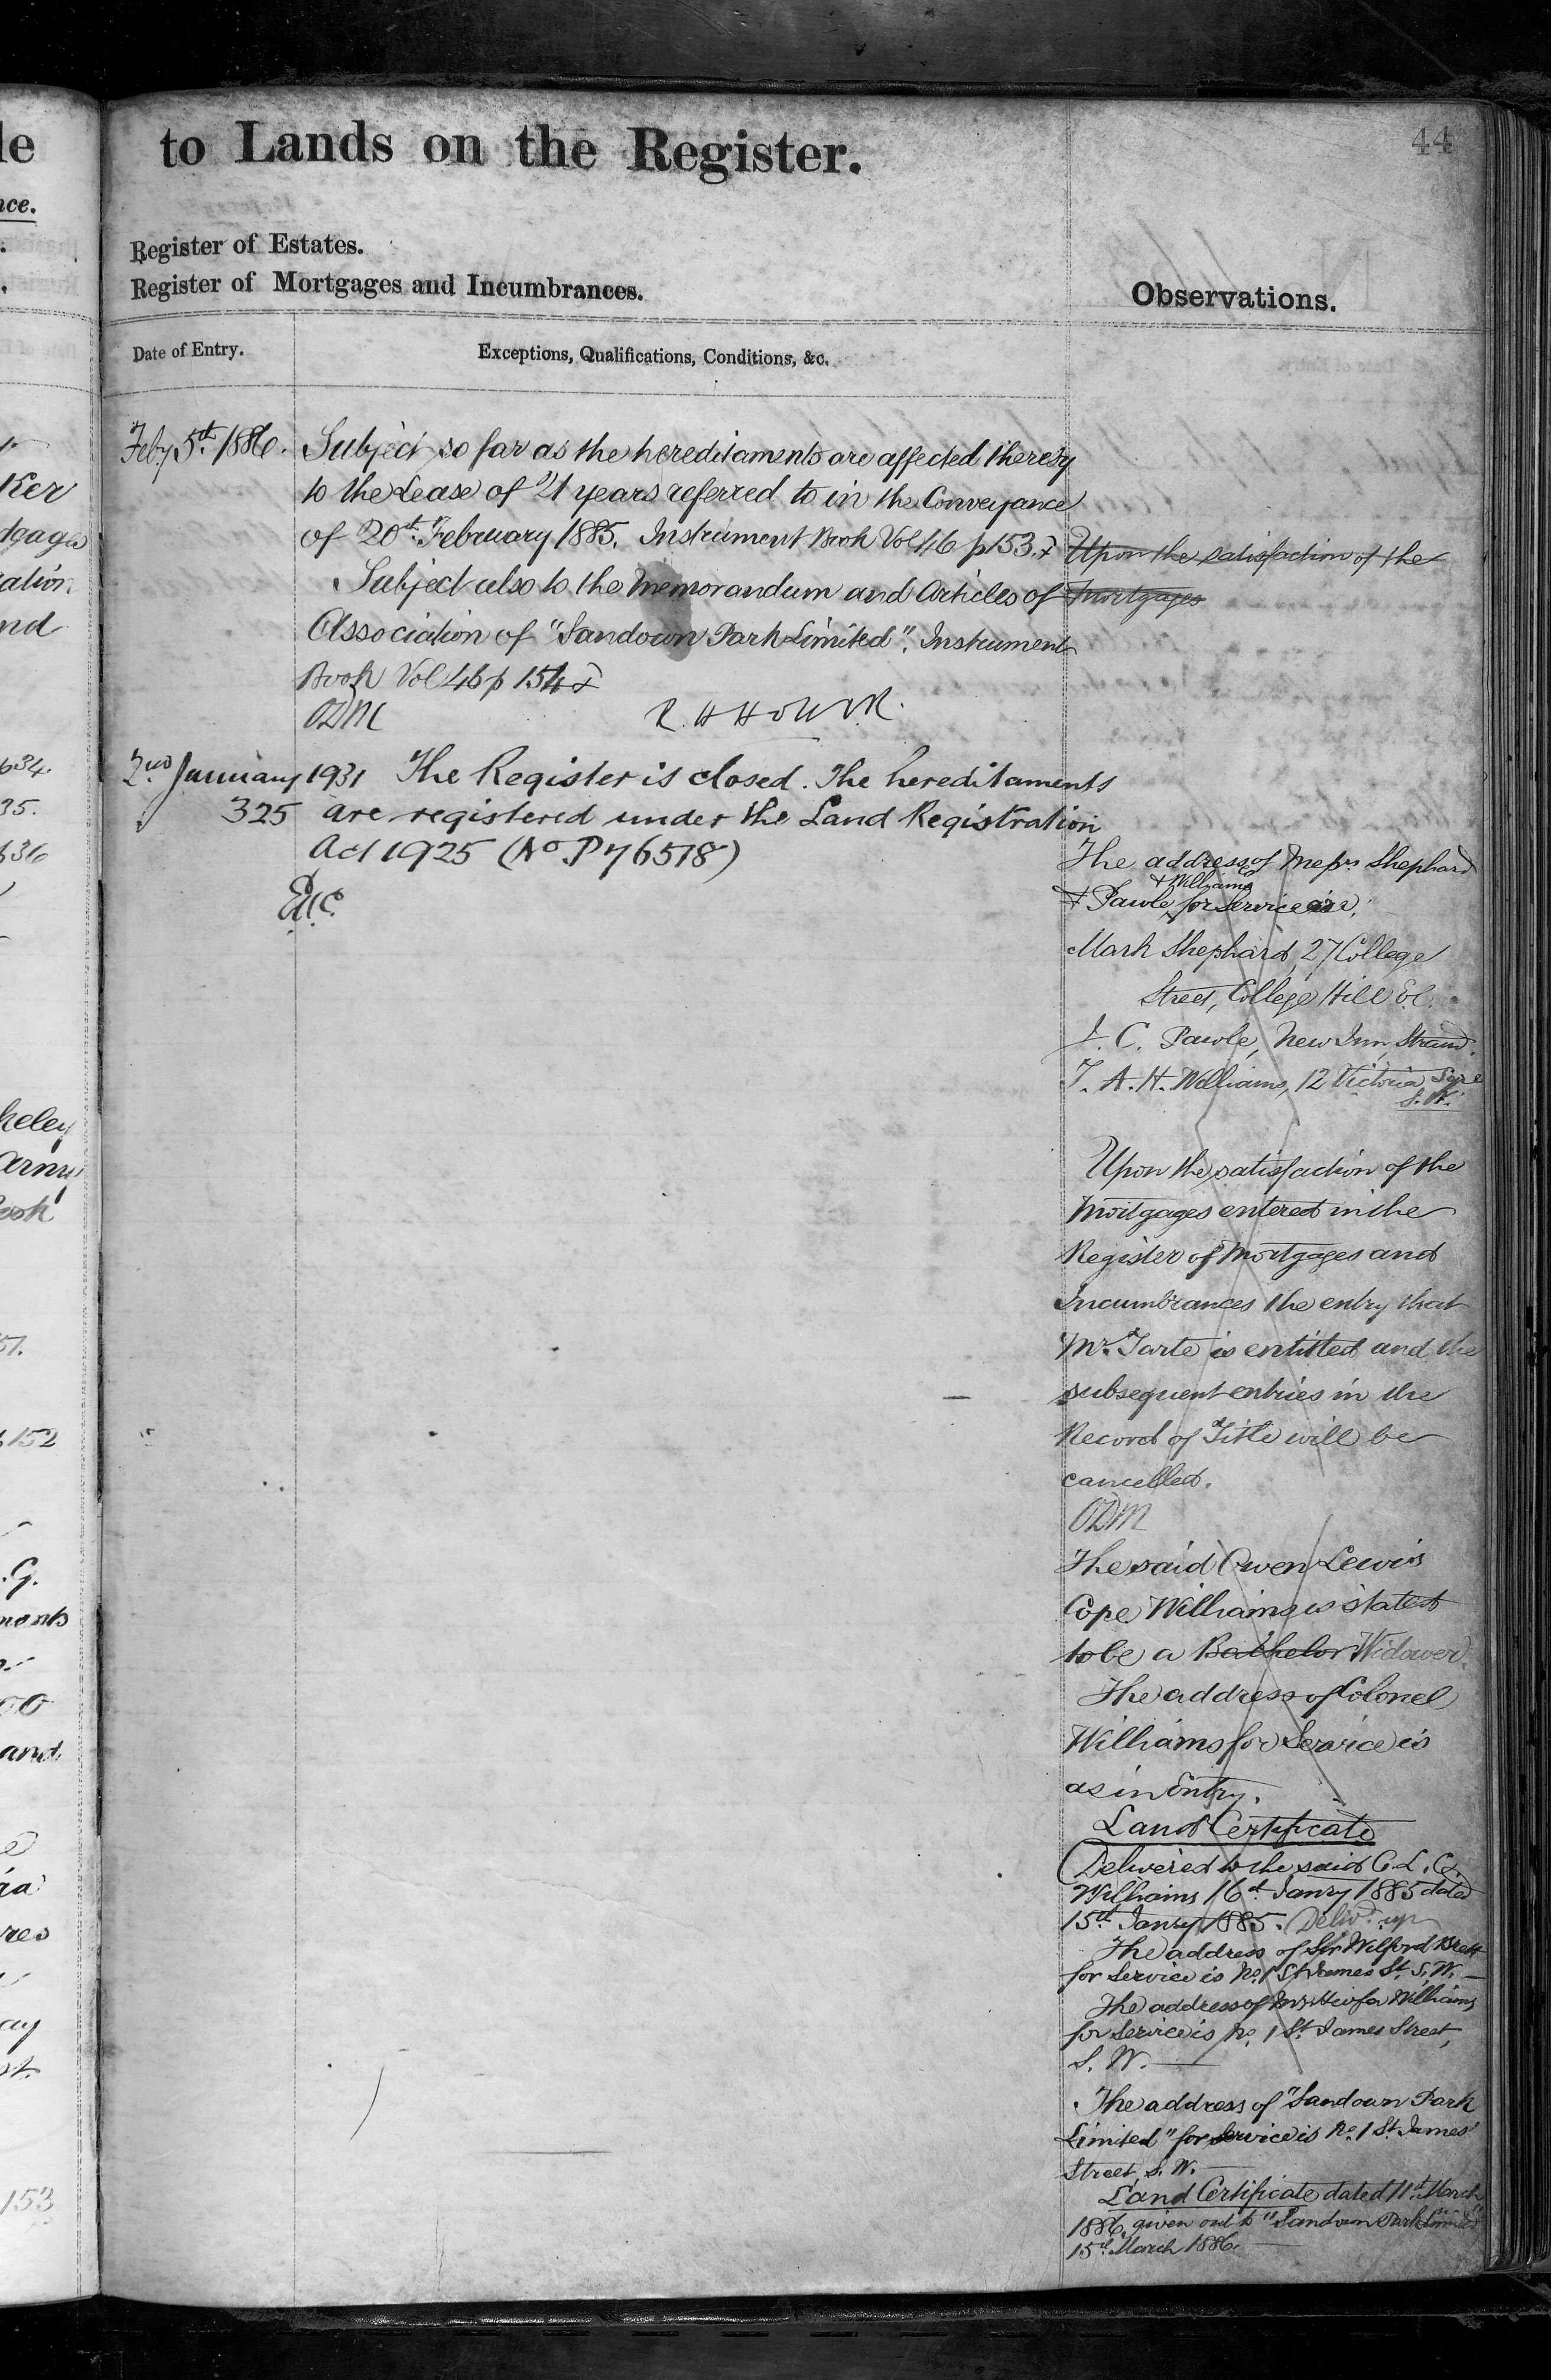 to Lands on the Register.
44
Register of Estates.
Register of Mortgages and Incumbrances.
Observations.
Date of Entry.
Exceptions, Qualifications, Conditions, &c.
Feby. 5th. 1886. Subject so far as the hereditaments are affected thereby
to the Lease of 21 years referred to in the Conveyance
of 20th. February 1885. Instrument Book Vol 46 p 153.
Subject also to the Memorandum and Articles of
Association of "Sandown Park Limited". Instrument
Book Vol 46 p 154
ODM
2nd January 1931 The Register is closed. The hereditaments
325 are registered under the Land Registration
Act 1925 (No P76518)
Upon the satisfaction of the
Mortgages
The address of Messrs Shephard
& Williams
& Pawle for Service are,
Mark Shephard, 27 College
Street, College Hill E.C.
J. C. Pawle, New Inn, Strand.
T. A. H. Williams, 12 Victoria Sqre
S.W.
Upon the satisfaction of the
Mortgages entered in the
Register of Mortgages and
Incumbrances the entry that
Mr. Tarte is entitled and the
subsequent entries in the
Record of Title will be
cancelled.
ODM
The said Owen Lewis
Cope Williams is stated
to be a Bachelor Widower.
The address of Colonel
Williams for Service is
as in Entry.
Land Certificate
Delivered to the said O. L. C.
Williams 16th. Janry 1885 dated
15th Janry 1885. Delivd. up
The address of Sir Wilford Brett
for Service is No. 1 St James St. S.W.
The address of Mr Hwfa Williams
for Service is No. 1 St. James Street,
S. W.
The address of "Sandown Park
Limited" for Service is No. 1 St. James'
Street, S. W.
Land Certificate dated 11th March
1886, given out to "Sandown Park Limited"
15th March 1886.
634.
35.
636
57.
152
153